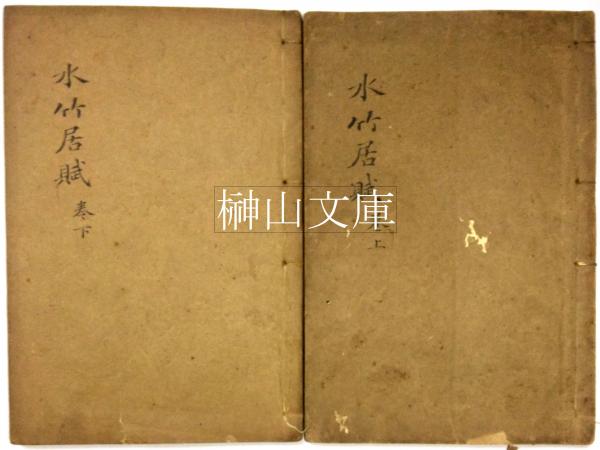 水竹居賦
卷上
水竹居賦
卷下
榊山文庫